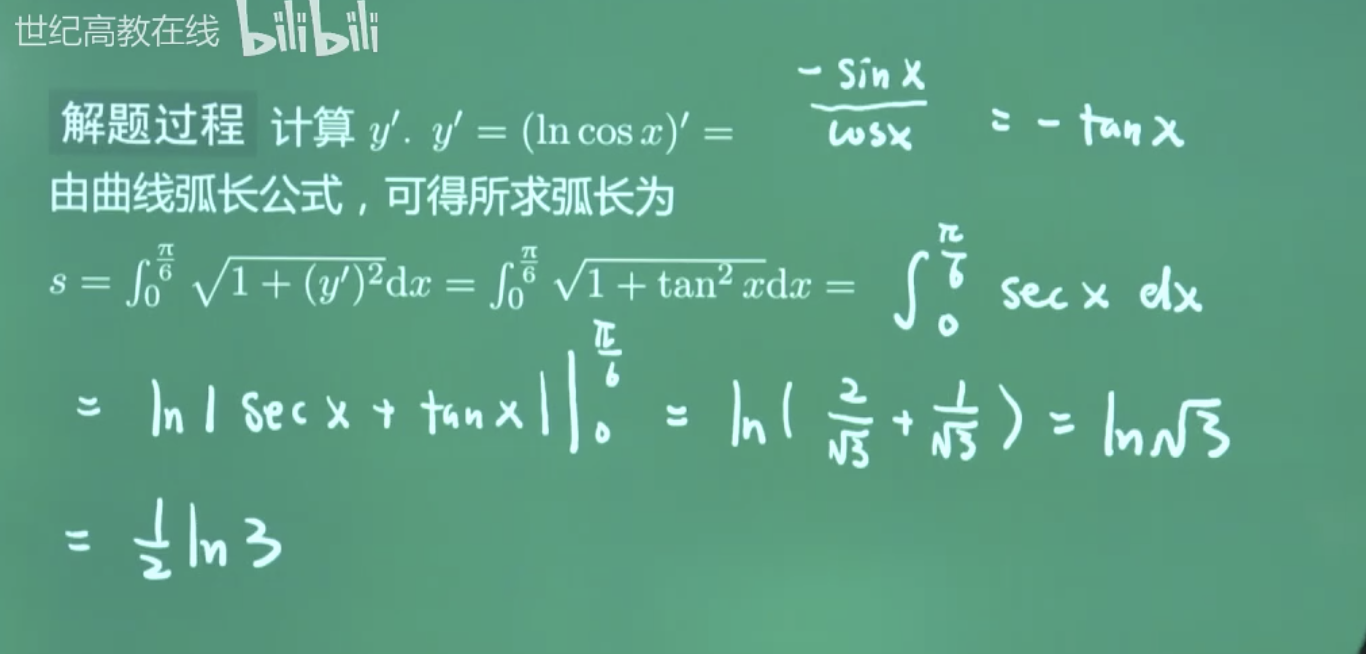 世纪高教在线 bilibili
解题过程 计算 y′. y′ = (ln cos x)′ = -sin x / cos x = - tan x
由曲线弧长公式，可得所求弧长为
s = ∫₀^(π/6) √(1 + (y′)²) dx = ∫₀^(π/6) √(1 + tan² x) dx = ∫₀^(π/6) sec x dx
= ln | sec x + tan x | |₀^(π/6) = ln ( 2/√3 + 1/√3 ) = ln √3
= 1/2 ln 3